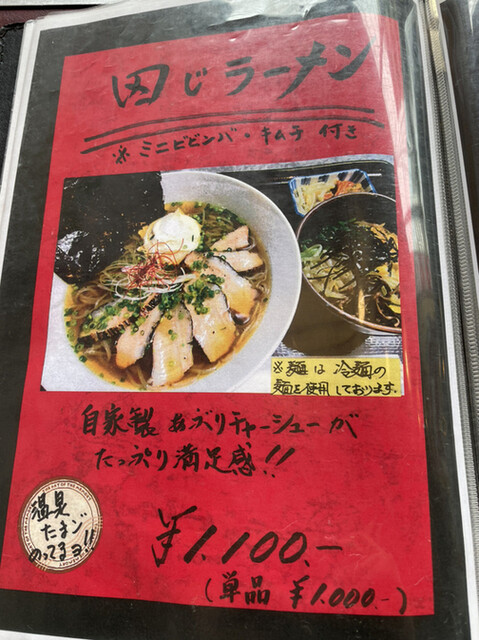 じラーメン
※ミニビビンバ・キムチ 付き
※麺は 冷麺の
麺を使用しております。
自家製 あぶりチャーシューが
たっぷり満足感!!
温泉
たまご
のってるヨ!!
¥1.100.-
(単品 ¥1.000.-)